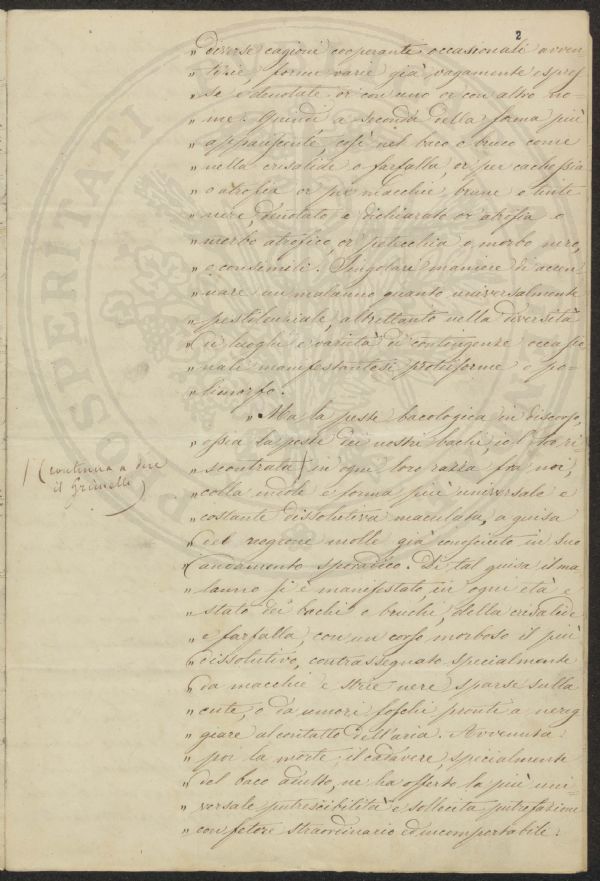 2
" diverse cagioni cooperanti occasionali avven-
" tizie, forme varie già vagamente espres-
" se e denotate or con uno or con altro no-
" me. Quindi a seconda della forma più
" appariscente, così nel baco o bruco come
" nella crisalide o farfalla, or per cachessia
" o atrofia or per macchie brune o tinte
" nere, denotato e dichiarato or atrofia o
" morbo atrofico, or petecchia o morbo nero,
" o consimili. Singolari maniere di accen-
" nare un malanno quanto universalmente
" pestilenziale, altrettanto nella diversità
" di luoghi e varietà di contingenze occasio-
" nali manifestantesi proteiforme e po-
" limorfo.
" Ma la peste bacologica in discorso,
" ossia la peste dei nostri bachi, io l'ho ri-
" scontrata / in ogni loro razza fra noi,
/ (continua a dire
il Grimelli)
" colla indole e forma più universale e
" costante dissolutiva maculata, a guisa
" del negrone molle già conosciuto in suo
" andamento sporadico. Di tal guisa il ma-
" lanno si è manifestato, in ogni età e
" stato dei bachi o bruchi, della crisalide
" e farfalla, con un corso morboso il più
" dissolutivo, contrassegnato specialmente
" da macchie e strie nere sparse sulla
" cute, e da umori foschi pronti a nereg-
" giare al contatto dell'aria. Avvenuta
" poi la morte, il cadavere, specialmente
" del baco adulto, ne ha offerto la più uni-
" versale putrescibilità e sollecita putrefazione
" con fetore straordinario ed incomportabile.
PROSPERITATI